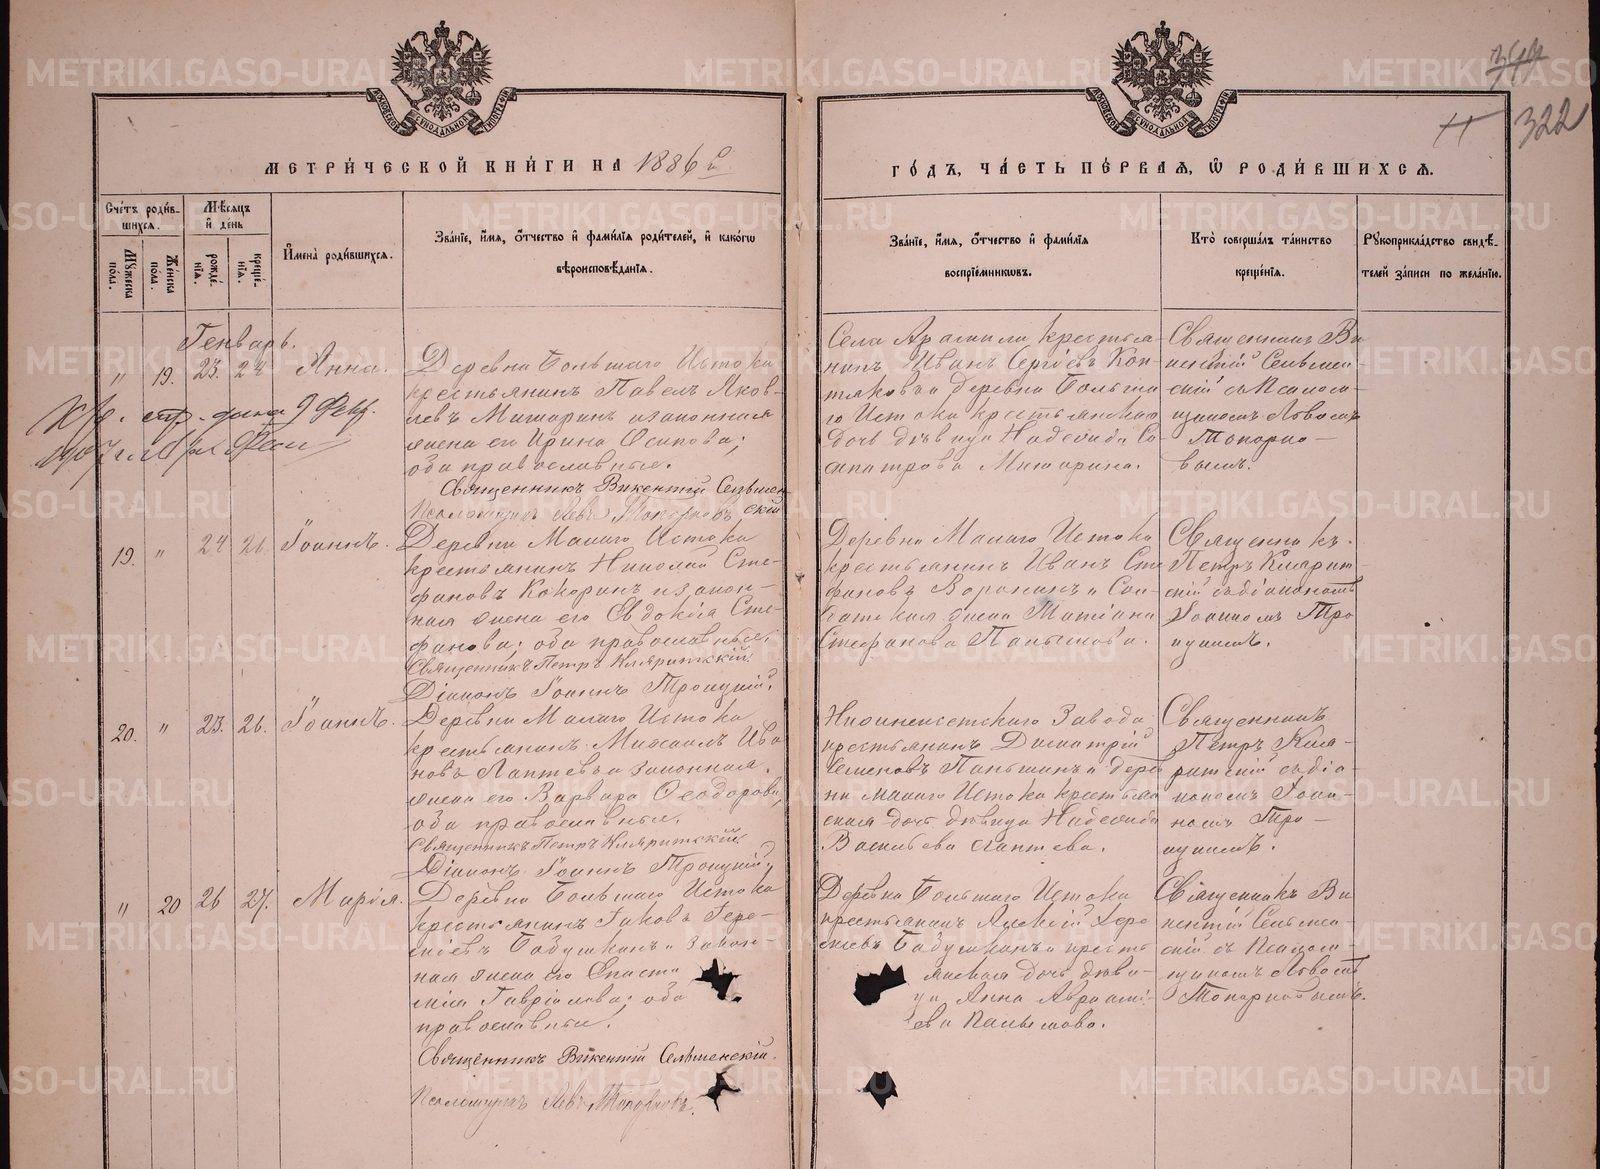 МЕТРИ́ЧЕСКОЙ КНИ́ГИ НА 1886 й
ГО́ДЪ, ЧА́СТЬ ПЕ́РВАЯ, Ѡ РОДИ́ВШИХСЯ.
322
Сче́тъ роди́в-
шихся.
Му́жеска по́ла.
Же́нска по́ла.
Мѣ́сяцъ и де́нь
рожде́нїя.
креще́нїя.
И҆мена̀ роди́вшихся.
Зва́нїе, и҆́мя, ѻ҆́тчество и҆ фами́лїя роди́телей, и҆ како́гѡ
вѣроисповѣ́данїя.
Зва́нїе, и҆́мя, ѻ҆́тчество и҆ фами́лїя
воспрїе́мникѡвъ.
Кто̀ соверша́лъ та́инство
креще́нїя.
Рꙋкоприкла́дство свидѣ́-
телей за́писи по жела́нїю.
Генварь.
" 19. 23. 24 Анна.
Деревни Большаго Истока
крестьянинъ Павелъ Яков-
левъ Машаринъ и законная
жена его Ирина Осипова;
оба православные.
Священникъ Викентій Сельмен-
скій
Псаломщикъ Левъ Топорковъ
Села Арамили крестья-
нинъ Иванъ Сергѣевъ Кон-
и деревни Больша
го Истока крестьянская
дочь дѣвица Надежда Со
сипатрова Машарина.
Священникъ Ви
кентій Сельмен
скій съ Псалом
щикомъ Львомъ
Топорко-
вымъ.
19. " 24 26. Іоаннъ.
Деревни Малаго Истока
крестьянинъ Николай Сте-
фановъ Кокоринъ и закон-
ная жена его Евдокія Сте-
фанова; оба православные.
Священникъ Петръ Кляритскій.
Діаконъ Іоаннъ Троицкій.
Деревни Малаго Истока
крестьянинъ Иванъ Сте
фановъ Воронинъ и Сол-
датская жена Татіана
Стефанова Папышова.
Священникъ
Петръ Клярит-
скій съ діакономъ
Іоанномъ Тро
ицкимъ.
20. " 25. 26. Іоаннъ.
Деревни Малаго Истока
крестьянинъ Михаилъ Ива
новъ Лаптевъ и законная
жена его Варвара Ѳеодорова,
оба православные.
Священникъ Петръ Кляритскій
Діаконъ Іоаннъ Троицкій
Нижнеисетскаго Завода
крестьянинъ Димитрій
Семеновъ Паньшинъ и дерев
ни Малаго Истока крестьян
ская дочь дѣвица Надежда
Васильева Лаптева.
Священникъ
Петръ Кля-
ритскій съ діа-
кономъ Іоан-
номъ Тро-
ицкимъ.
" 20 26 27. Марія.
Деревни Большаго Истока
крестьянинъ Іаковъ Гера-
Бабушкинъ и закон-
ная жена его Еписти
мія Гавріилова; оба
православные.
Священникъ Викентій Сельменскій.
Псаломщикъ Левъ Топорковъ.
Деревни Большаго Истока
крестьянинъ Алексій
Бабушкинъ и кресть
янская дочь дѣви-
ца Анна Аврамі-
ева
Священникъ Ви
кентій Сельмен
скій съ Псалом-
щикомъ Львомъ
Топорковымъ.
METRIKI.GASO-URAL.RU